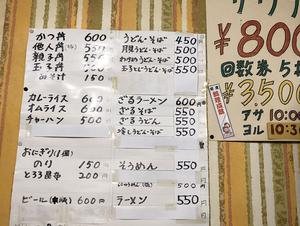 かつ丼 600
他人丼 550
親子丼 550
玉子丼 500
みそ汁 150
カレーライス 600
オムライス 600
チャーハン 500
おにぎり(1個)
のり 150円
とろろ昆布 200円
ビール 600円
うどん・そば 450
月見うどん・そば 500
わかめうどん・そば 500
玉子とじうどん・そば 550
ざるラーメン 600
ざるそば 550
ざるうどん 550
冷しうどん・そば 550
そうめん 550
500
ラーメン 550
¥800
回数券
¥3,500
アサ 10:00
ヨル 10:30